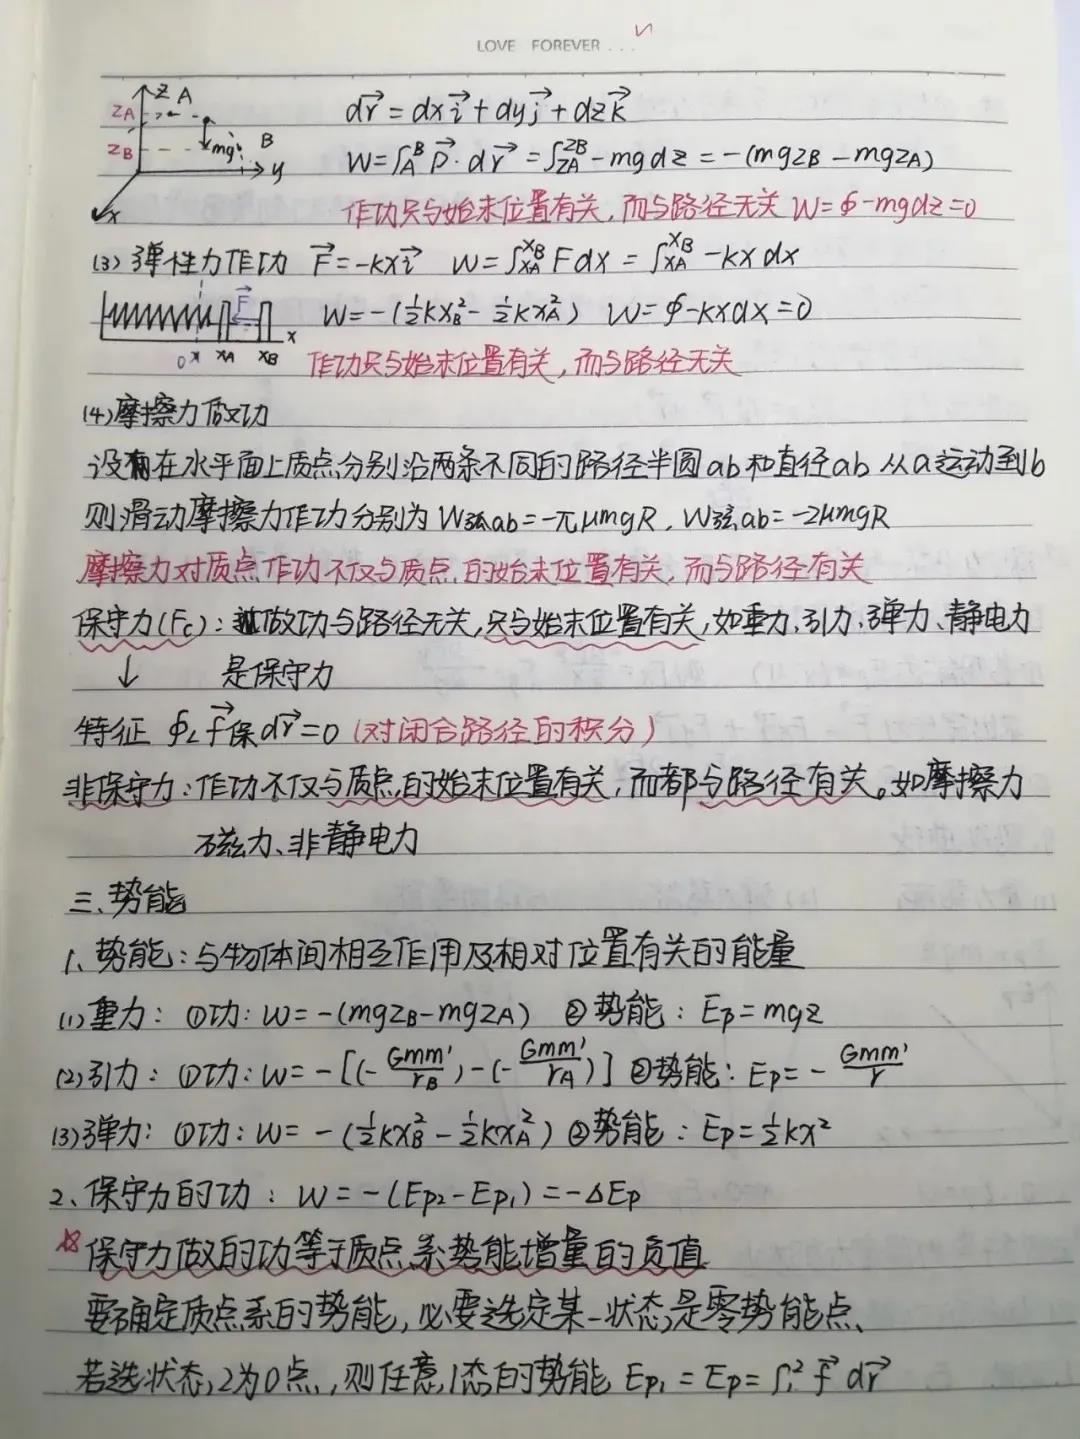 LOVE FOREVER ...
z A
z_A
z_B mg B
y
x
dr⃗ = dx i⃗ + dy j⃗ + dz k⃗
W=∫_A^B P⃗·dr⃗ = ∫_{zA}^{zB} -mgdz = -(mgz_B - mgz_A)
作功只与始末位置有关,而与路径无关 W=∮-mgdz=0
(3) 弹性力作功 F⃗=-kx i⃗ W=∫_{xA}^{xB} Fdx = ∫_{xA}^{xB} -kx dx
F⃗
W=-(½kx_B²- ½kx_A²) W=∮-kxdx=0
o x x_A x_B x
作功只与始末位置有关,而与路径无关
(4)摩擦力做功
设在水平面上质点分别沿两条不同的路径半圆ab和直径ab 从a运动到b
则滑动摩擦力作功分别为 W弧ab=-πμmgR, W弦ab=-2μmgR
摩擦力对质点作功不仅与质点的始末位置有关,而与路径有关
保守力(Fc):做功与路径无关,只与始末位置有关,如重力、引力、弹力、静电力
↓ 是保守力
特征 ∮_L f⃗保dr⃗=0 (对闭合路径的积分)
非保守力:作功不仅与质点的始末位置有关,而都与路径有关。如摩擦力
磁力、非静电力
三、势能
1、势能:与物体间相互作用及相对位置有关的能量
(1)重力: ①功: W=-(mgz_B-mgz_A) ②势能: Ep=mgz
(2)引力: ①功: W=-[(-Gmm'/r_B)-(-Gmm'/r_A)] ②势能: Ep=-Gmm'/r
(3)弹力: ①功: W= -(½kx_B²-½kx_A²) ②势能: Ep=½kx²
2、保守力的功: W=-(Ep2-Ep1)=-ΔEp
☆保守力做的功等于质点系势能增量的负值
要确定质点系的势能,必要选定某一状态是零势能点、
若选状态2为0点,则任意1态的势能 Ep1 = Ep=∫_1^2 f⃗ dr⃗